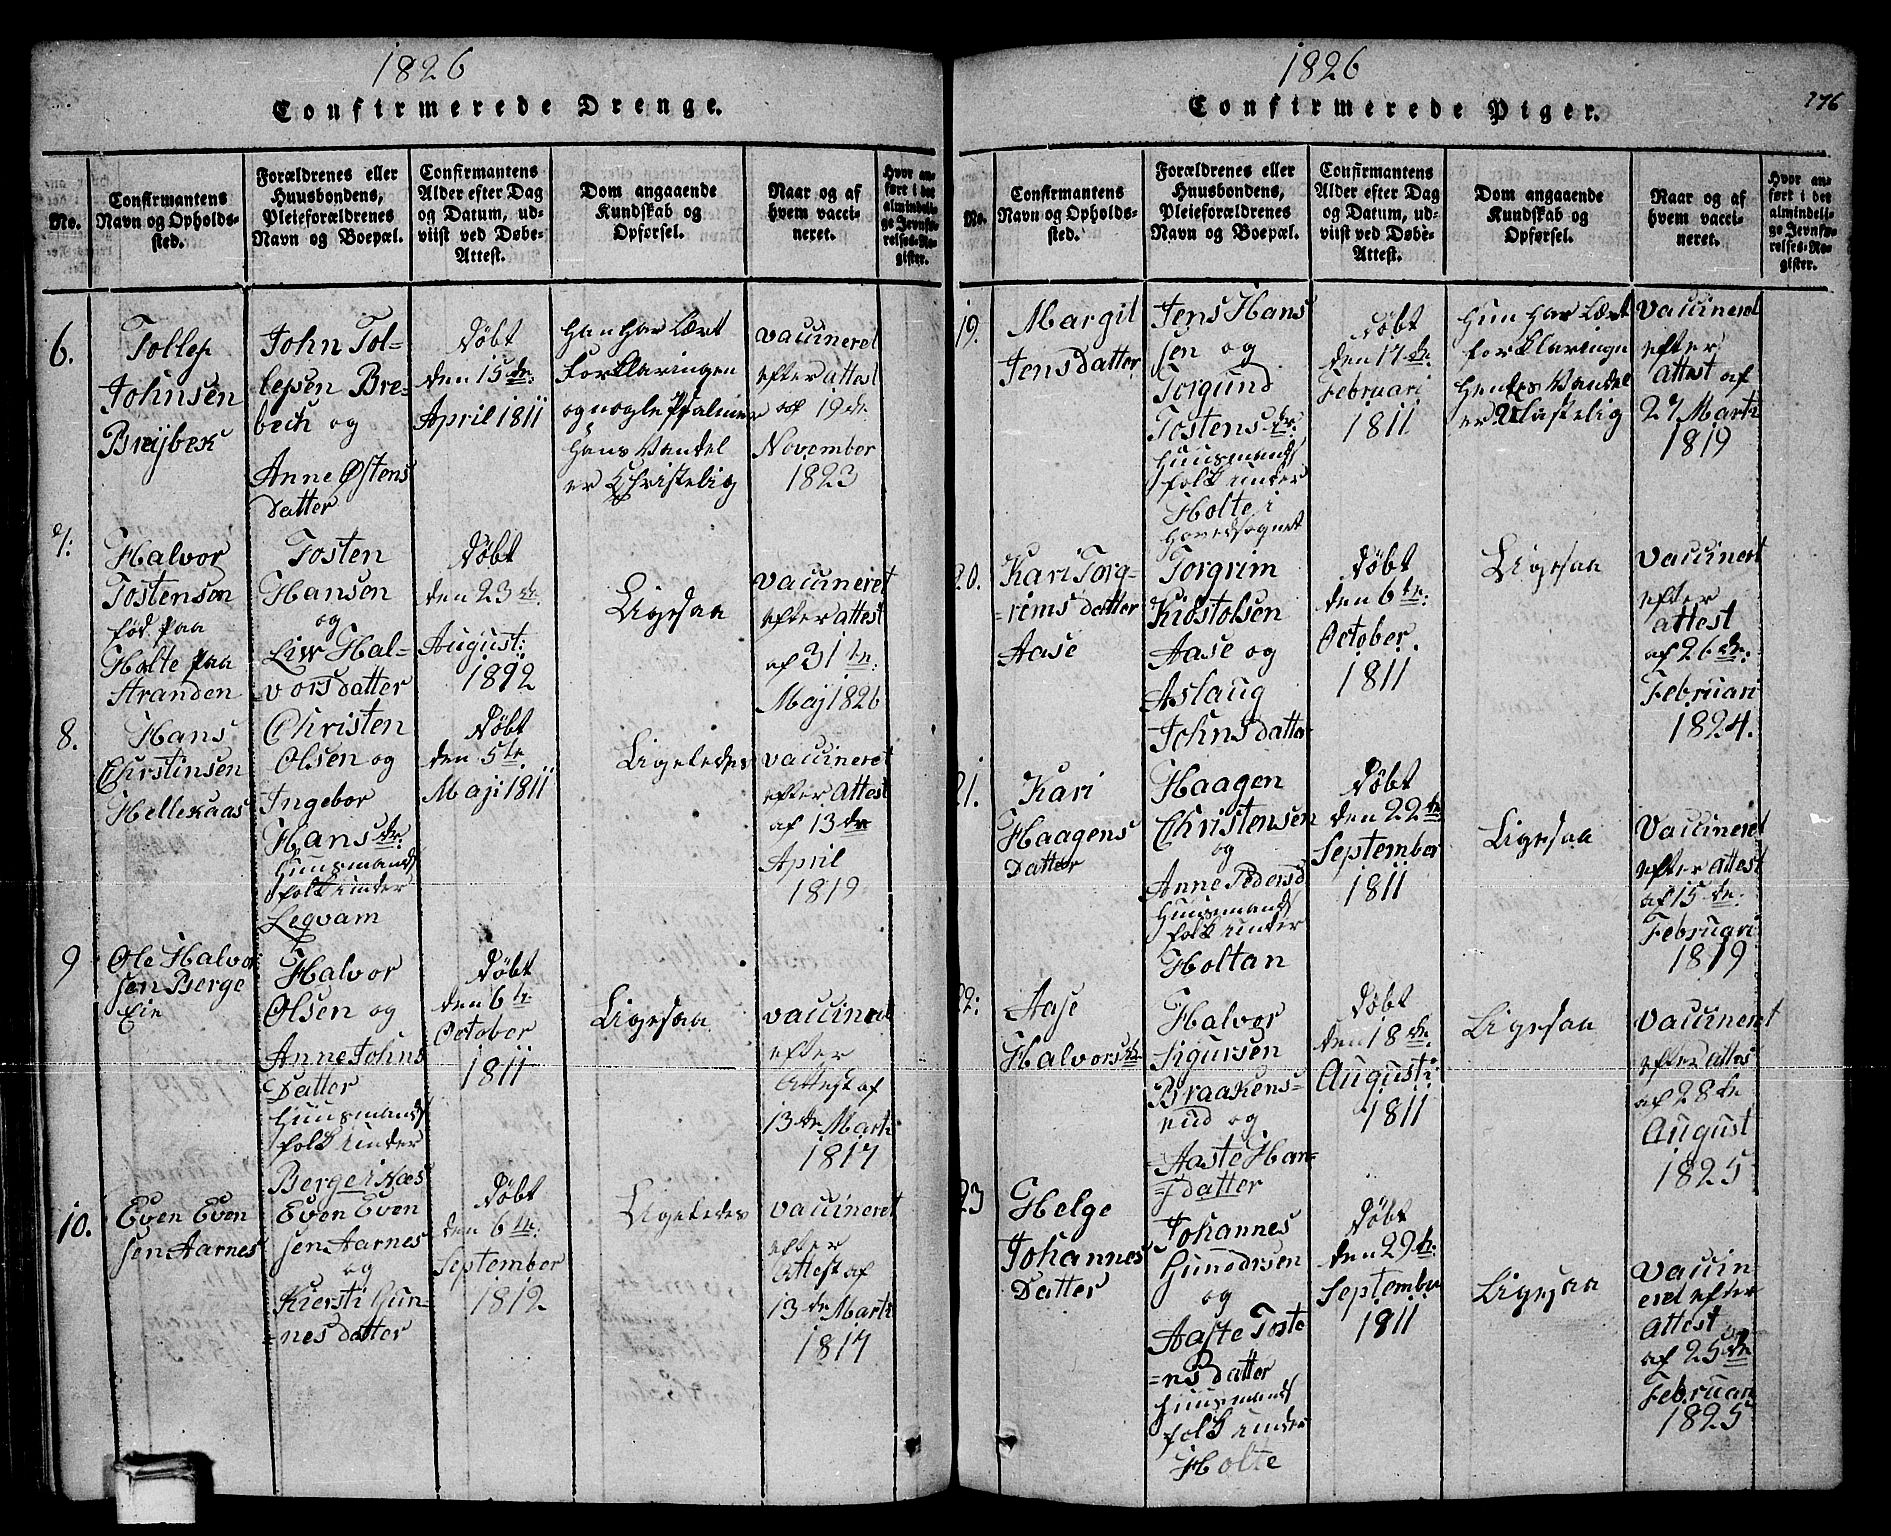 1826
Confirmerede Drenge.
No.
Confirmantens
Navn og Opholds-
sted.
Forældrenes eller
Huusbondens,
Pleieforældrenes
Navn og Boepæl.
Confirmantens
Alder efter Dag
og Datum, ud-
viist ved Døbe-
Attest.
Dom angaaende
Kundskab og
Opførsel.
Naar og af
hvem vacci-
neret.
Hvor an-
ført i det
almindeli-
ge Jevnfø-
relses-Re-
gister.
6.
Tollef
Johnsen
Breijbek
John Tol-
lefsen Bre-
bech og
Anne Østens
datter
Døbt
den 15 de
April 1811
Han har Lært
Forklaringen
og nogle Psalmer
Hans Vandel
er Christelig
Vaccineret
efter attest
af 19 de
November
1823
7:
Halvor
Tostenson
fød paa
Holte paa
Stranden
Tosten
Hansen
og
Liw Hal-
vorsdatter
Døbt
den 23 de
August:
1812
Ligesaa
Vaccineret
efter attest
af 31 te:
Maj 1826
8.
Hans
Chrstinsen
Hellekaas
Christen
Olsen og
Ingebor
Hans dr.
Huusmands
folk under
Legvam
Døbt
den 5 te
Maji 1811
Ligeledes
Vaccineret
efter Attest
af 13 de
April
1819
9
Ole Halvor
sen Berge
Eie
Halvor
Olsen og
Anne Johns
Datter
Huusmands
folk under
Berge i Næs
Døbt
den 6 te
October
1811
Ligesaa
Vaccineret
efter
Attest af
13 de Marti
1817
10.
Even Even
sen Aarnes
Even Even
sen Aarnes
og
Kiersti Gun-
=nes datter
Døbt
den 6 te
September
1812
Ligeledes
Vaccineret
efter
Attest af
13 de Marti
1817
1826
Confirmerede Piger.
176
No.
Confirmantens
Navn og Opholds-
sted.
Forældrenes eller
Huusbondens,
Pleieforældrenes
Navn og Boepæl.
Confirmantens
Alder efter Dag
og Datum, ud-
viist ved Døbe-
Attest.
Dom angaaende
Kundskab og
Opførsel.
Naar og af
hvem vacci-
neret.
Hvor an-
ført i det
almindeli-
ge Jevnfø-
relses-Re-
gister.
19.
Margit
Jensdatter
Jens Hans
sen og
Torgund
Tostens dr:
Huusmands
folk under
Holte i
Hovedsognet
Døbt
den 17 de
Februari
1811
Hun har Lært
forklaringn
Hendes Vandel
er Ulastelig
Vaccineret
efter
attest af
27 Marti
1819
20.
Kari Torg-
=rims datter
Aase
Torgrim
Kiøstolsen
Aase og
Aslaug
Johnsdatter
Døbt
den 6 te:
October.
1811
Ligesaa
Vaccineret
efter
attest
af 26 de:
Februari
1824.
21.
Kari
Haagens
Datter
Haagen
Christensen
og
Anne Pedersd
Huusmands
folk under
Holtan
Døbt
den 22 de
September
1811
Ligesaa
Vaccineret
efter attest
af 15 de:
Februari
1819
22:
Aase
Halvors dr
Halvor
Sigursen
Braakens-
nud og
Aaste Han=
=sdatter
Døbt
den 18 de
Augusti
1811
Ligesaa
Vaccineret
efter attes
af 28 de
August
1825
23
Helge
Johannes
Datter
Johannes
Gunedrsen
og
Aaste Toste
=nsdatter
Huusmands
folk under
Holte
Døbt
den 29 de:
September
1811
Ligesaa
Vaccin=
eret efter
Attest
af 25 de
Februari
1825